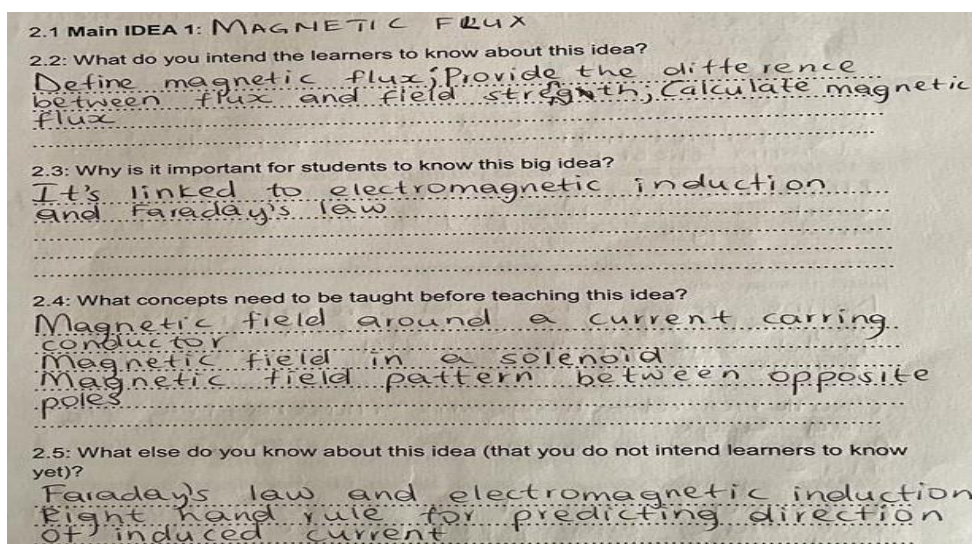 2.1 Main IDEA 1: MAGNETIC FLUX
2.2: What do you intend the learners to know about this idea?
Define magnetic flux; Provide the difference
between flux and field stregnth; Calculate magnetic
flux
2.3: Why is it important for students to know this big idea?
It's linked to electromagnetic induction
and Faraday's law
2.4: What concepts need to be taught before teaching this idea?
Magnetic field around a current carring
conductor
Magnetic field in a solenoid
Magnetic field pattern between opposite
poles
2.5: What else do you know about this idea (that you do not intend learners to know
yet)?
Faraday's law and electromagnetic induction
Right hand rule for predicting direction
of induced current